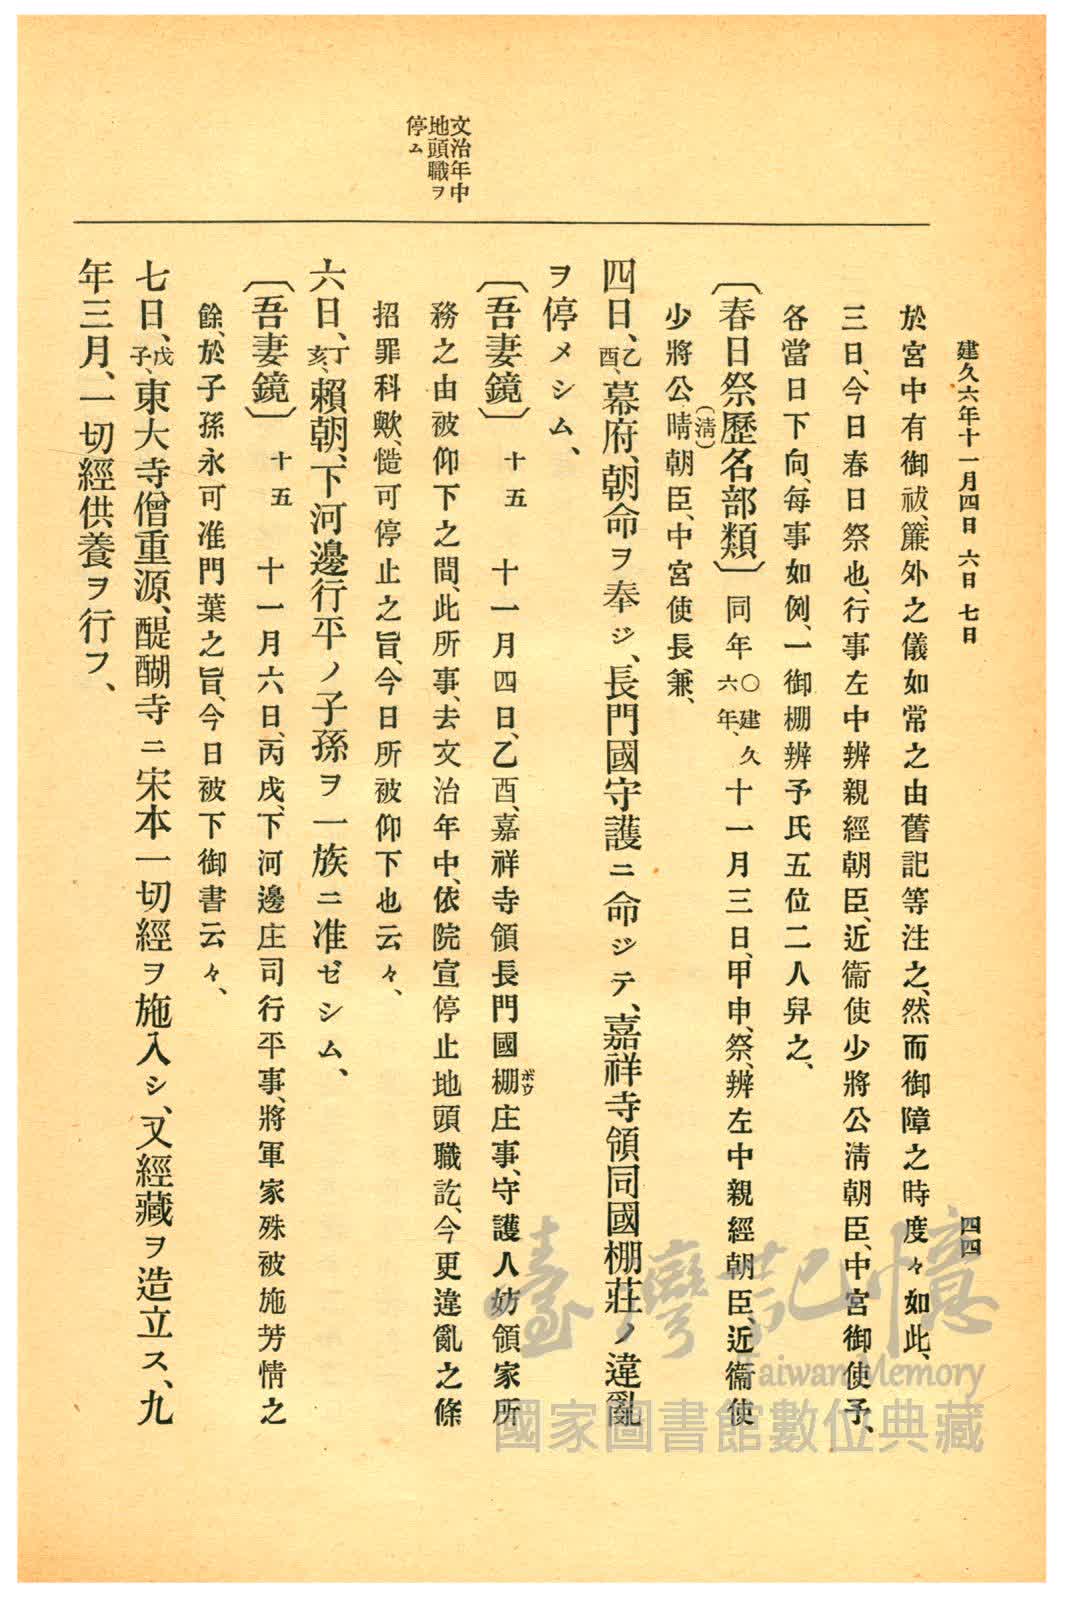 建久六年十一月四日 六日 七日
四四
於宮中有御祓、簾外之儀如常之由舊記等注之、然而御障之時度々如此、
三日、今日春日祭也、行事左中辨親經朝臣、近衞使少將公淸朝臣、中宮御使予、
各當日下向、每事如例、一御棚辨予氏五位二人舁之、
〔春日祭歷名部類〕 同年 〇建久六年、 十一月三日、甲申、祭、辨左中親經朝臣、近衞使
少將公晴(淸)朝臣、中宮使長兼、
四日、乙酉、幕府、朝命ヲ奉ジ、長門國守護ニ命ジテ、嘉祥寺領同國棚莊ノ違亂
ヲ停メシム、
文治年中
地頭職ヲ
停ム
〔吾妻鏡〕 十五 十一月四日、乙酉、嘉祥寺領長門國棚ボウ庄事、守護人妨領家所
務之由被仰下之間、此所事、去文治年中、依院宣停止地頭職訖、今更違亂之條
招罪科歟、慥可停止之旨、今日所被仰下也云々、
六日、丁亥、賴朝、下河邊行平ノ子孫ヲ一族ニ准ゼシム、
〔吾妻鏡〕 十五 十一月六日、丙戌、下河邊庄司行平事、將軍家殊被施芳情之
餘、於子孫永可准門葉之旨、今日被下御書云々、
七日、戊子、東大寺僧重源、醍醐寺ニ宋本一切經ヲ施入シ、又經藏ヲ造立ス、九
年三月、一切經供養ヲ行フ、
臺灣記憶
Taiwan Memory
國家圖書館數位典藏